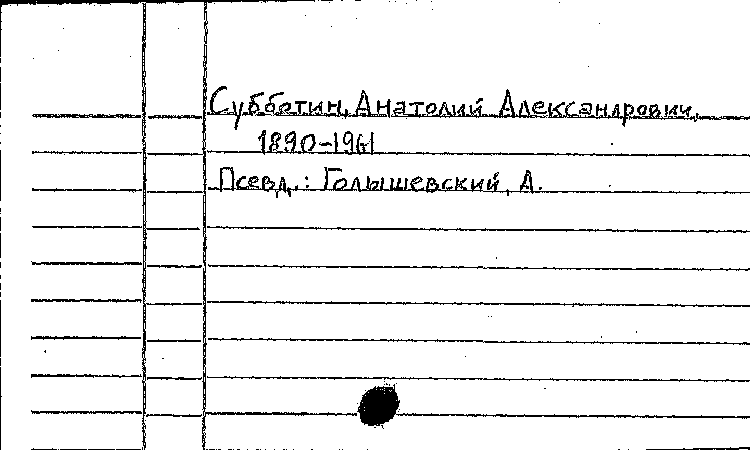 Субботин, Анатолий Александрович,
1890-1961
Псевд.: Голышевский, А.